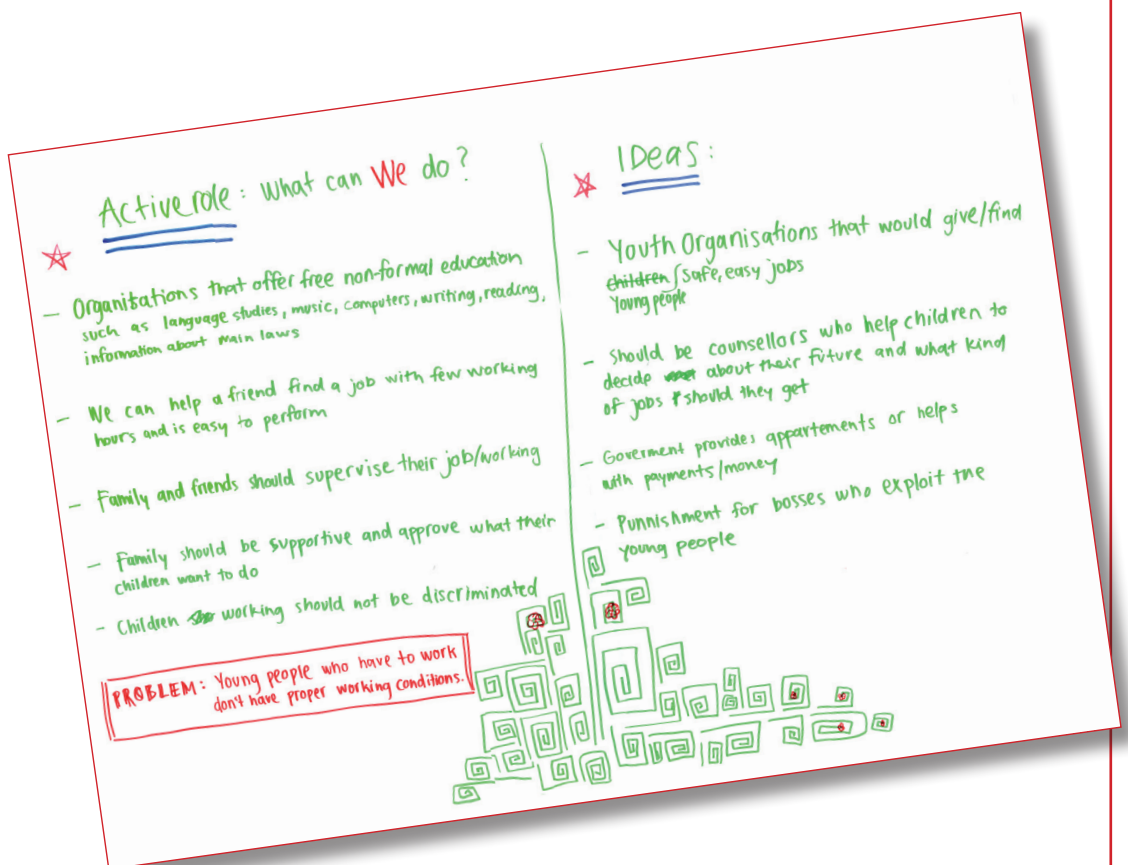 Active role: What can We do?
- Organisations that offer free non-formal education
such as language studies, music, computers, writing, reading,
information about main laws
- We can help a friend find a job with few working
hours and is easy to perform
- Family and friends should supervise their job/working
- Family should be supportive and approve what their
children want to do
- Children working should not be discriminated
PROBLEM: Young people who have to work
don't have proper working conditions.
IDeas:
- Youth Organisations that would give/find
children safe, easy jobs
Young people
- Should be counsellors who help children to
decide about their future and what kind
of jobs should they get
- Goverment provides appartements or helps
with payments/money
- Punnishment for bosses who exploit the
young people